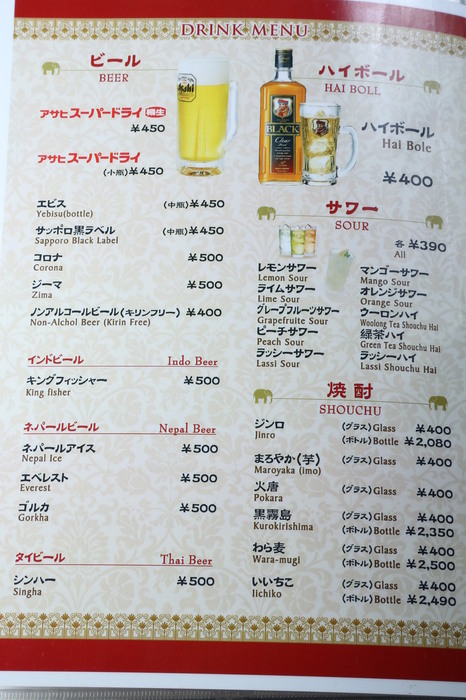 DRINK MENU
ビール
BEER
アサヒスーパードライ 樽生
¥450
アサヒスーパードライ
(小瓶)¥450
エビス (中瓶)¥450
Yebisu(bottle)
サッポロ黒ラベル (中瓶)¥450
Sapporo Black Label
コロナ ¥500
Corona
ジーマ ¥500
Zima
ノンアルコールビール(キリンフリー) ¥400
Non-Alchol Beer (Kirin Free)
インドビール Indo Beer
キングフィッシャー ¥500
King fisher
ネパールビール Nepal Beer
ネパールアイス ¥500
Nepal Ice
エベレスト ¥500
Everest
ゴルカ ¥500
Gorkha
タイビール Thai Beer
シンハー ¥500
Singha
Asahi
BLACK
Clear
ハイボール
HAI BOLL
ハイボール
Hai Bole
¥400
サワー
SOUR
各 ¥390
All
レモンサワー
Lemon Sour
ライムサワー
Lime Sour
グレープフルーツサワー
Grapefruite Sour
ピーチサワー
Peach Sour
ラッシーサワー
Lassi Sour
マンゴーサワー
Mango Sour
オレンジサワー
Orange Sour
ウーロンハイ
Woolong Tea Shouchu Hai
緑茶ハイ
Green Tea Shouchu Hai
ラッシーハイ
Lassi Shouchu Hai
焼酎
SHOUCHU
ジンロ (グラス)Glass ¥400
Jinro (ボトル)Bottle ¥2,080
まろやか(芋) (グラス)Glass ¥400
Maroyaka (imo)
火唐 (グラス)Glass ¥400
Pokara
黒霧島 (グラス)Glass ¥400
Kurokirishima (ボトル)Bottle ¥2,350
わら麦 (グラス)Glass ¥400
Wara-mugi (ボトル)Bottle ¥2,500
いいちこ (グラス)Glass ¥400
Iichiko (ボトル)Bottle ¥2,490